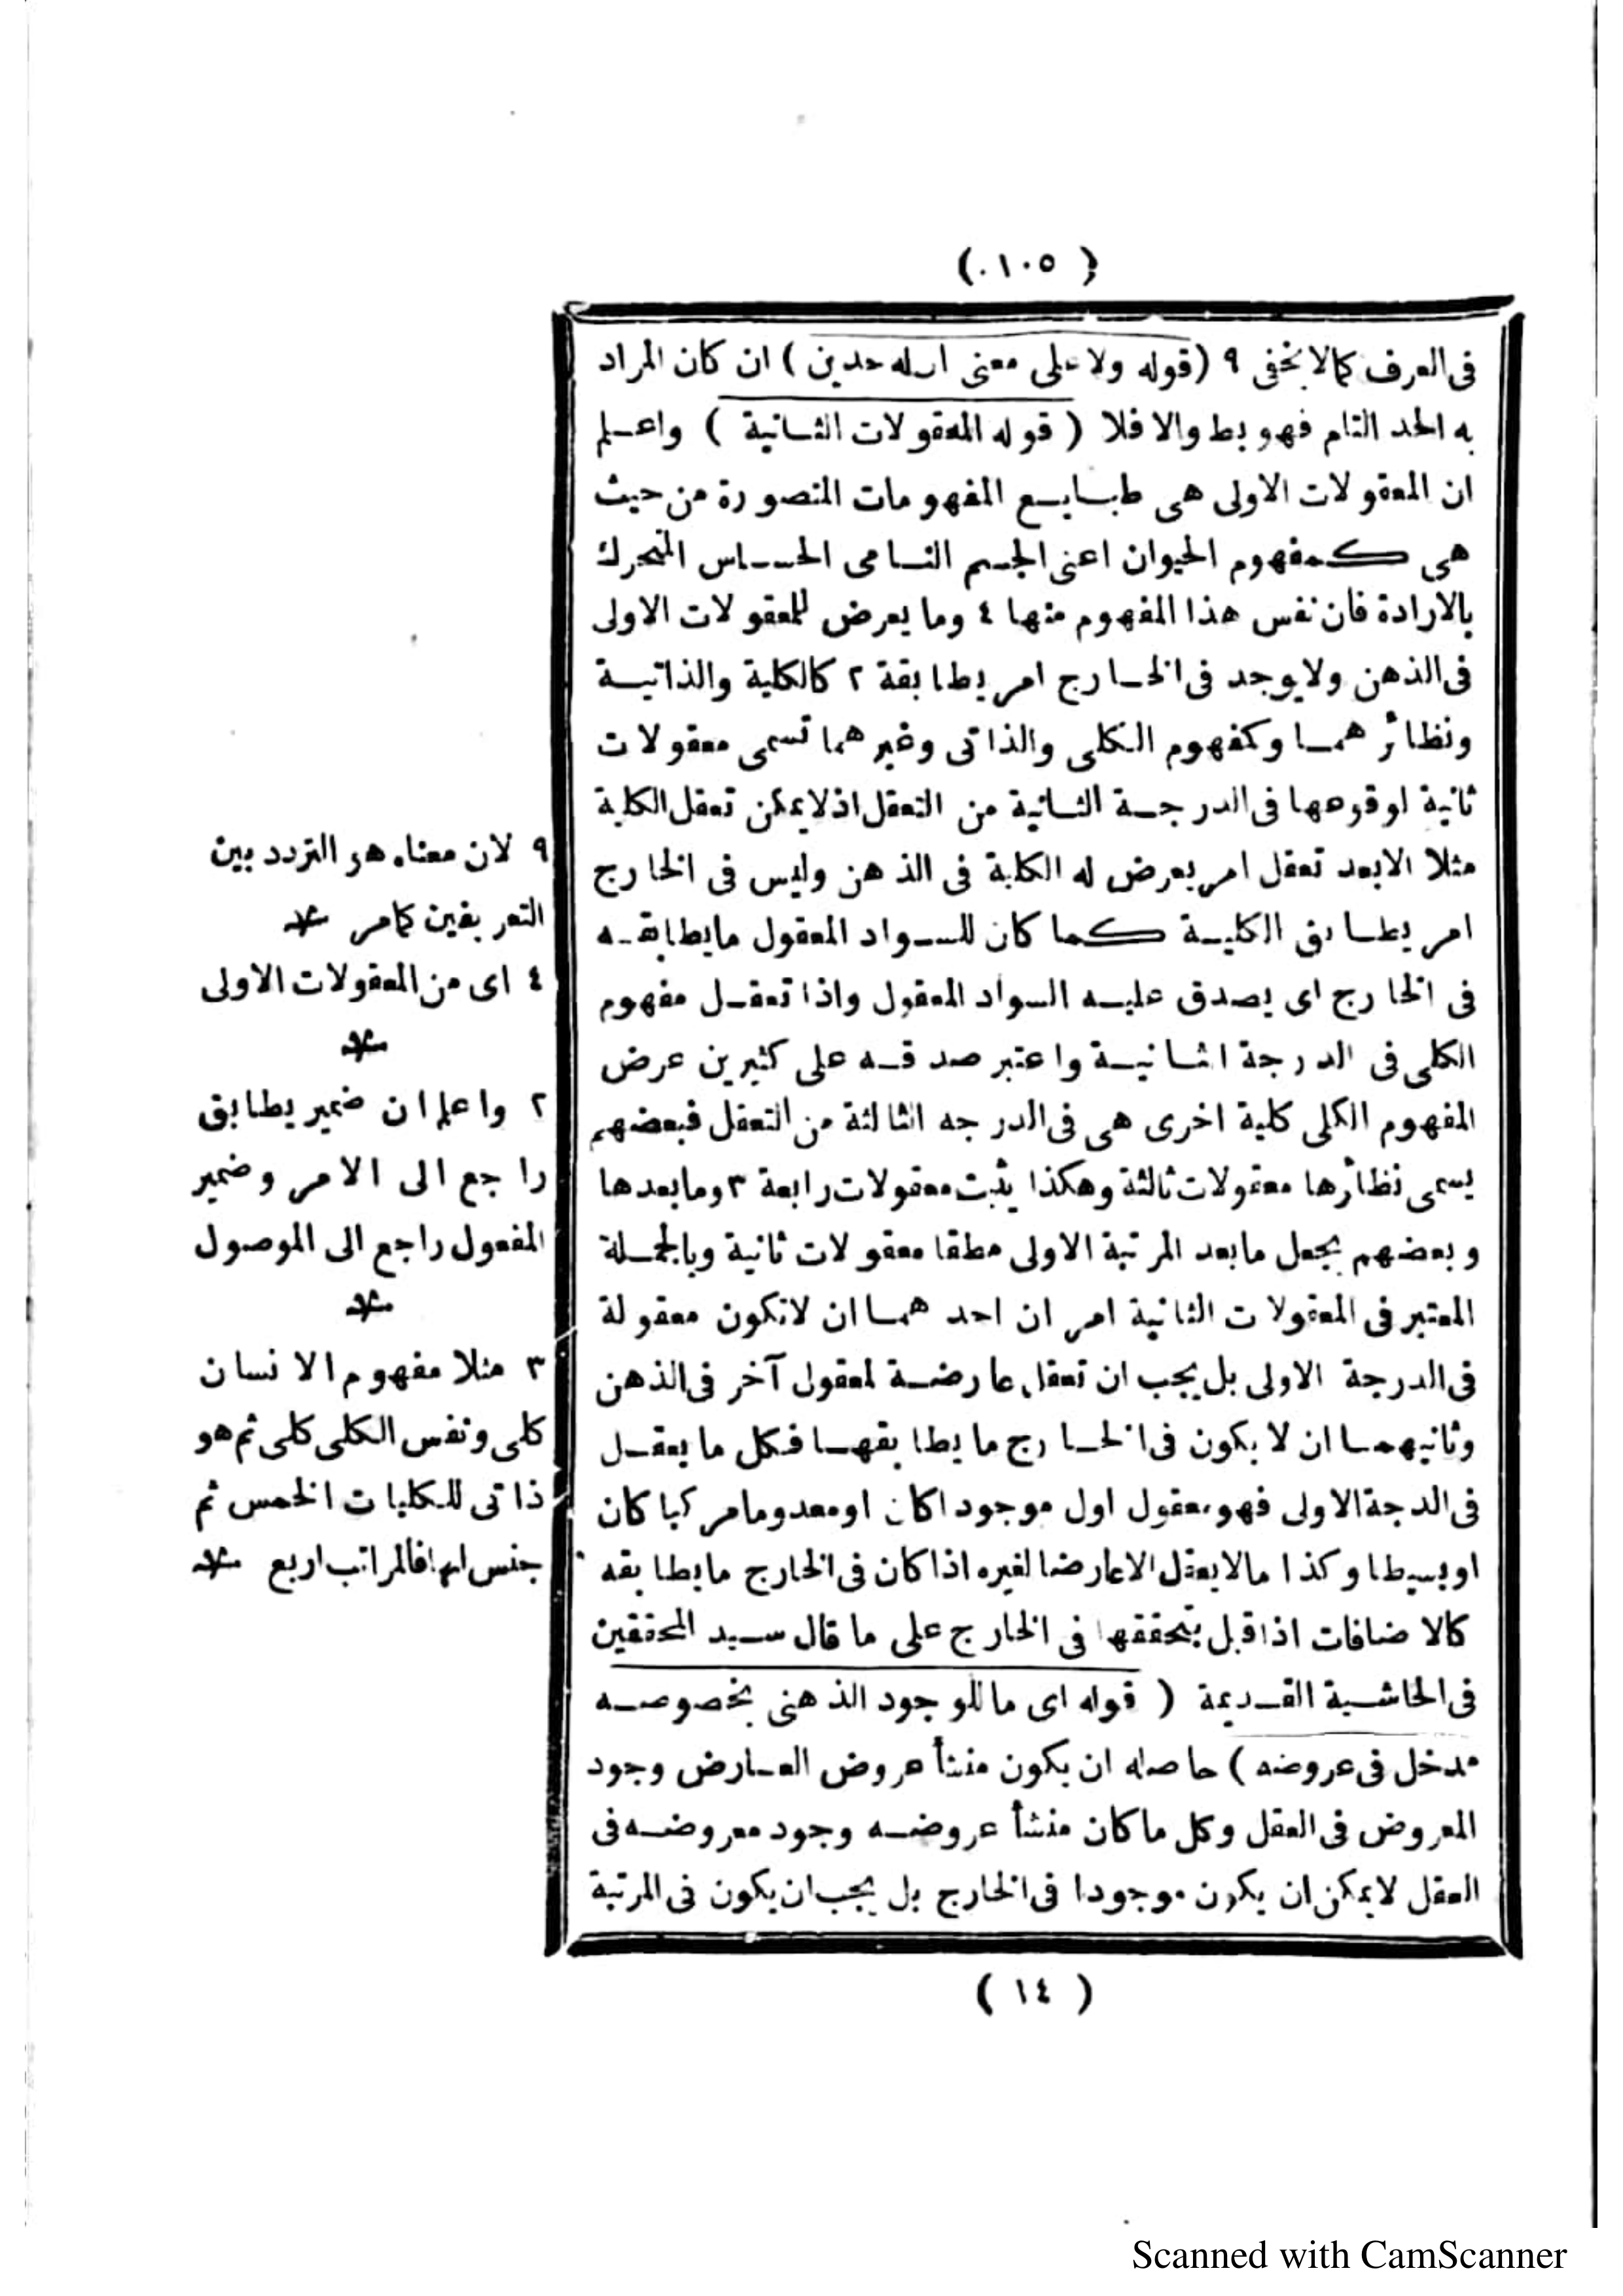 (١٠٥)
فى العرف كمالا يخفى ٩ (قوله ولا على معنى ان له حدين) ان كان المراد
به الحد التام فهو بط والا فلا (قوله المعقولات الثانية) واعلم
ان المعقولات الاولى هى طبايع المفهومات المتصورة من حيث
هى كمفهوم الحيوان اعنى الجسم النامى الحساس المتحرك
بالارادة فان نفس هذا المفهوم منها ٤ وما يعرض للمعقولات الاولى
فى الذهن ولا يوجد فى الخارج امر يطابقة ٢ كالكلية والذاتية
ونظائرهما وكمفهوم الكلى والذاتى وغيرهما تسمى معقولات
ثانية لوقوعها فى الدرجة الثانية من التعقل اذ لا يمكن تعقل الكلية
مثلا الا بعد تعقل امر يعرض له الكلية فى الذهن وليس فى الخارج
امر يطابق الكلية كما كان للسواد المعقول ما يطابقه
فى الخارج اى يصدق عليه السواد المعقول واذا تعقل مفهوم
الكلى فى الدرجة الثانية واعتبر صدقه على كثيرين عرض
المفهوم الكلى كلية اخرى هى فى الدرجه الثالثة من التعقل فبعضهم
يسمى نظائرها معقولات ثالثة وهكذا يثبت معقولات رابعة ٣ وما بعدها
وبعضهم يجعل ما بعد المرتبة الاولى مطقا معقولات ثانية وبالجملة
المعتبر فى المعقولات الثانية امران احدهما ان لا تكون معقولة
فى الدرجة الاولى بل يجب ان تعقل عارضة لمعقول آخر فى الذهن
وثانيهما ان لا يكون فى الخارج ما يطابقها فكل ما يعقل
فى الدجة الاولى فهو معقول اول موجودا كان او معدوما مركبا كان
او بسيطا وكذا ما لا يعقل الا عارضا لغيره اذا كان فى الخارج ما يطابقه
كالاضافات اذا قيل بتحققها فى الخارج على ما قال سيد المحققين
فى الحاشية القديمة (قوله اى ما للوجود الذهنى بخصوصه
مدخل فى عروضه) حاصله ان يكون منشأ عروض العارض وجود
المعروض فى العقل وكل ما كان منشأ عروضه وجود معروضه فى
العقل لا يمكن ان يكون موجودا فى الخارج بل يجب ان يكون فى المرتبة
(١٤)
٩ لان معناه هو التردد بين
التعريفين كمامر
٤ اى من المعقولات الاولى
٢ واعلم ان ضمير يطابق
راجع الى الامر وضمير
المفعول راجع الى الموصول
٣ مثلا مفهوم الانسان
كلى ونفس الكلى كلى ثم هو
ذاتى للكليات الخمس ثم
جنس لها فالمراتب اربع
Scanned with CamScanner